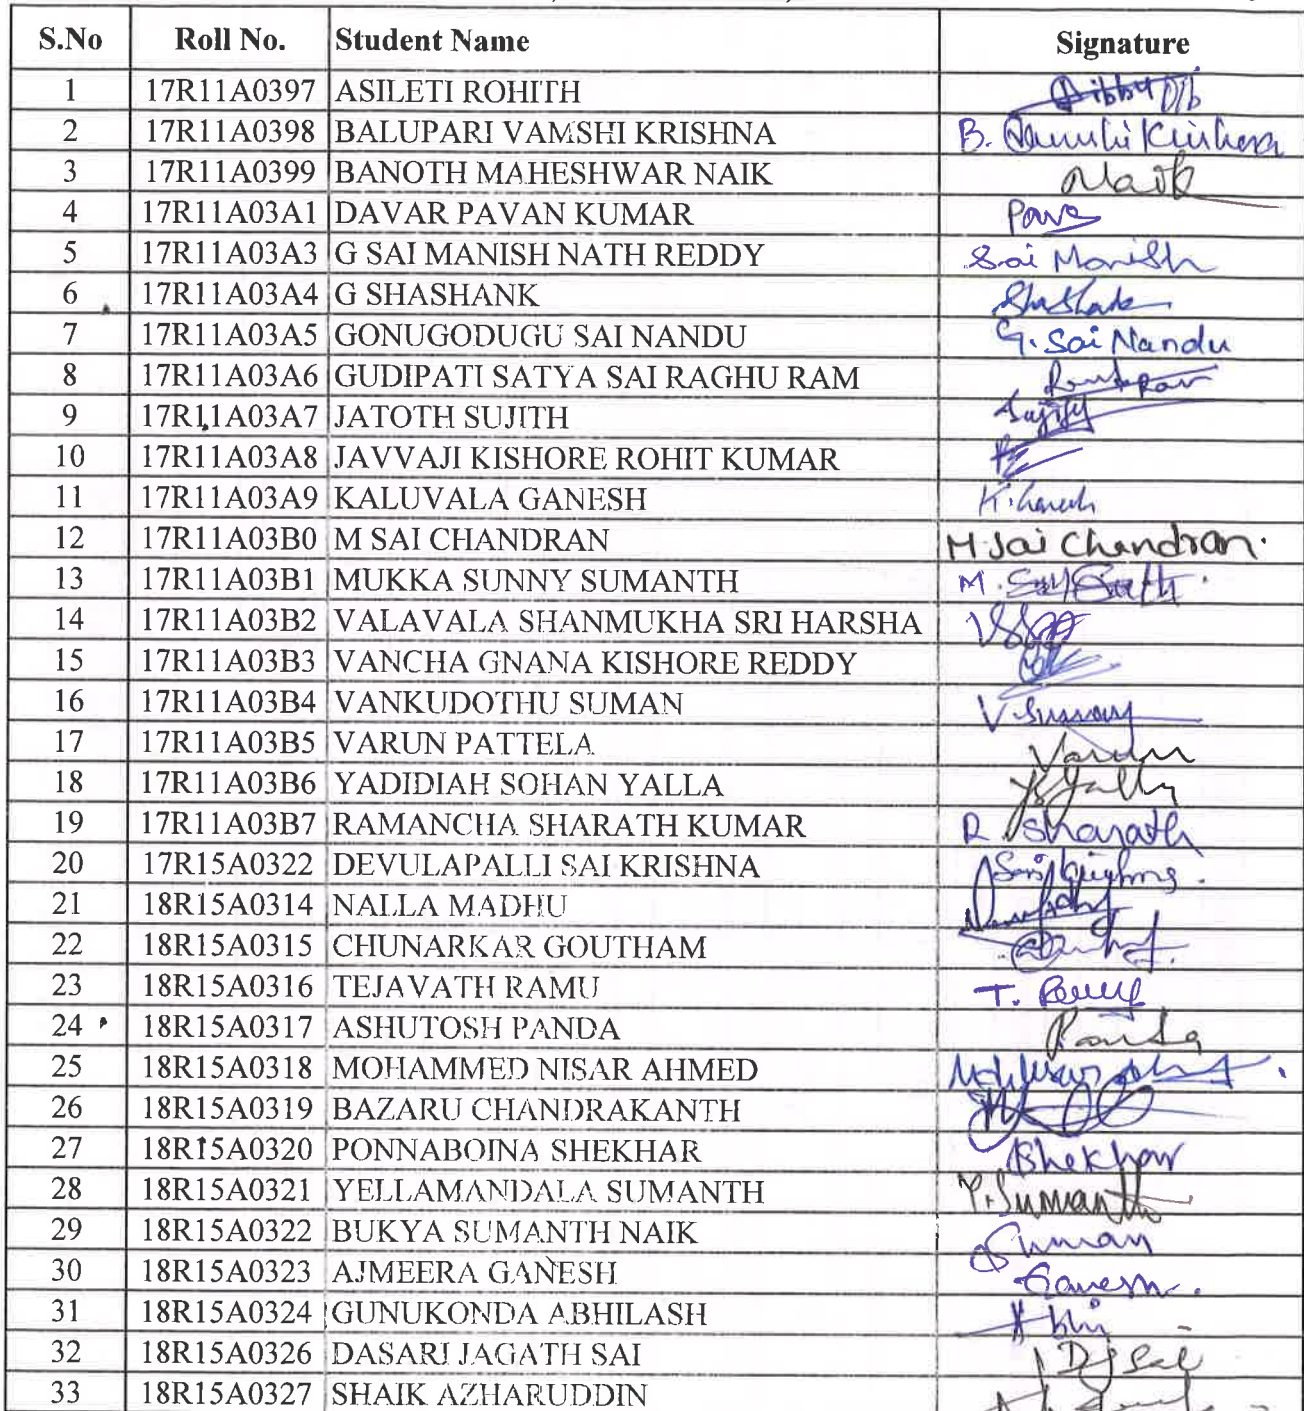 S.No Roll No. Student Name Signature
1 17R11A0397 ASILETI ROHITH
2 17R11A0398 BALUPARI VAMSHI KRISHNA B. Vamshi Krishna
3 17R11A0399 BANOTH MAHESHWAR NAIK Naik
4 17R11A03A1 DAVAR PAVAN KUMAR
5 17R11A03A3 G SAI MANISH NATH REDDY Sai Manish
6 17R11A03A4 G SHASHANK Shashank
7 17R11A03A5 GONUGODUGU SAI NANDU G. Sai Nandu
8 17R11A03A6 GUDIPATI SATYA SAI RAGHU RAM
9 17R11A03A7 JATOTH SUJITH Sujith
10 17R11A03A8 JAVVAJI KISHORE ROHIT KUMAR
11 17R11A03A9 KALUVALA GANESH K. Ganesh
12 17R11A03B0 M SAI CHANDRAN M. Sai Chandran.
13 17R11A03B1 MUKKA SUNNY SUMANTH M.
14 17R11A03B2 VALAVALA SHANMUKHA SRI HARSHA
15 17R11A03B3 VANCHA GNANA KISHORE REDDY
16 17R11A03B4 VANKUDOTHU SUMAN V. Suman
17 17R11A03B5 VARUN PATTELA Varun
18 17R11A03B6 YADIDIAH SOHAN YALLA YSYalla
19 17R11A03B7 RAMANCHA SHARATH KUMAR R Sharath
20 17R15A0322 DEVULAPALLI SAI KRISHNA Sai Krishna.
21 18R15A0314 NALLA MADHU
22 18R15A0315 CHUNARKAR GOUTHAM
23 18R15A0316 TEJAVATH RAMU T. Ramu
24 18R15A0317 ASHUTOSH PANDA Panda
25 18R15A0318 MOHAMMED NISAR AHMED
26 18R15A0319 BAZARU CHANDRAKANTH
27 18R15A0320 PONNABOINA SHEKHAR Shekhar
28 18R15A0321 YELLAMANDALA SUMANTH Y. Sumanth
29 18R15A0322 BUKYA SUMANTH NAIK Suman
30 18R15A0323 AJMEERA GANESH Ganesh.
31 18R15A0324 GUNUKONDA ABHILASH Abhi
32 18R15A0326 DASARI JAGATH SAI DJ Sai
33 18R15A0327 SHAIK AZHARUDDIN